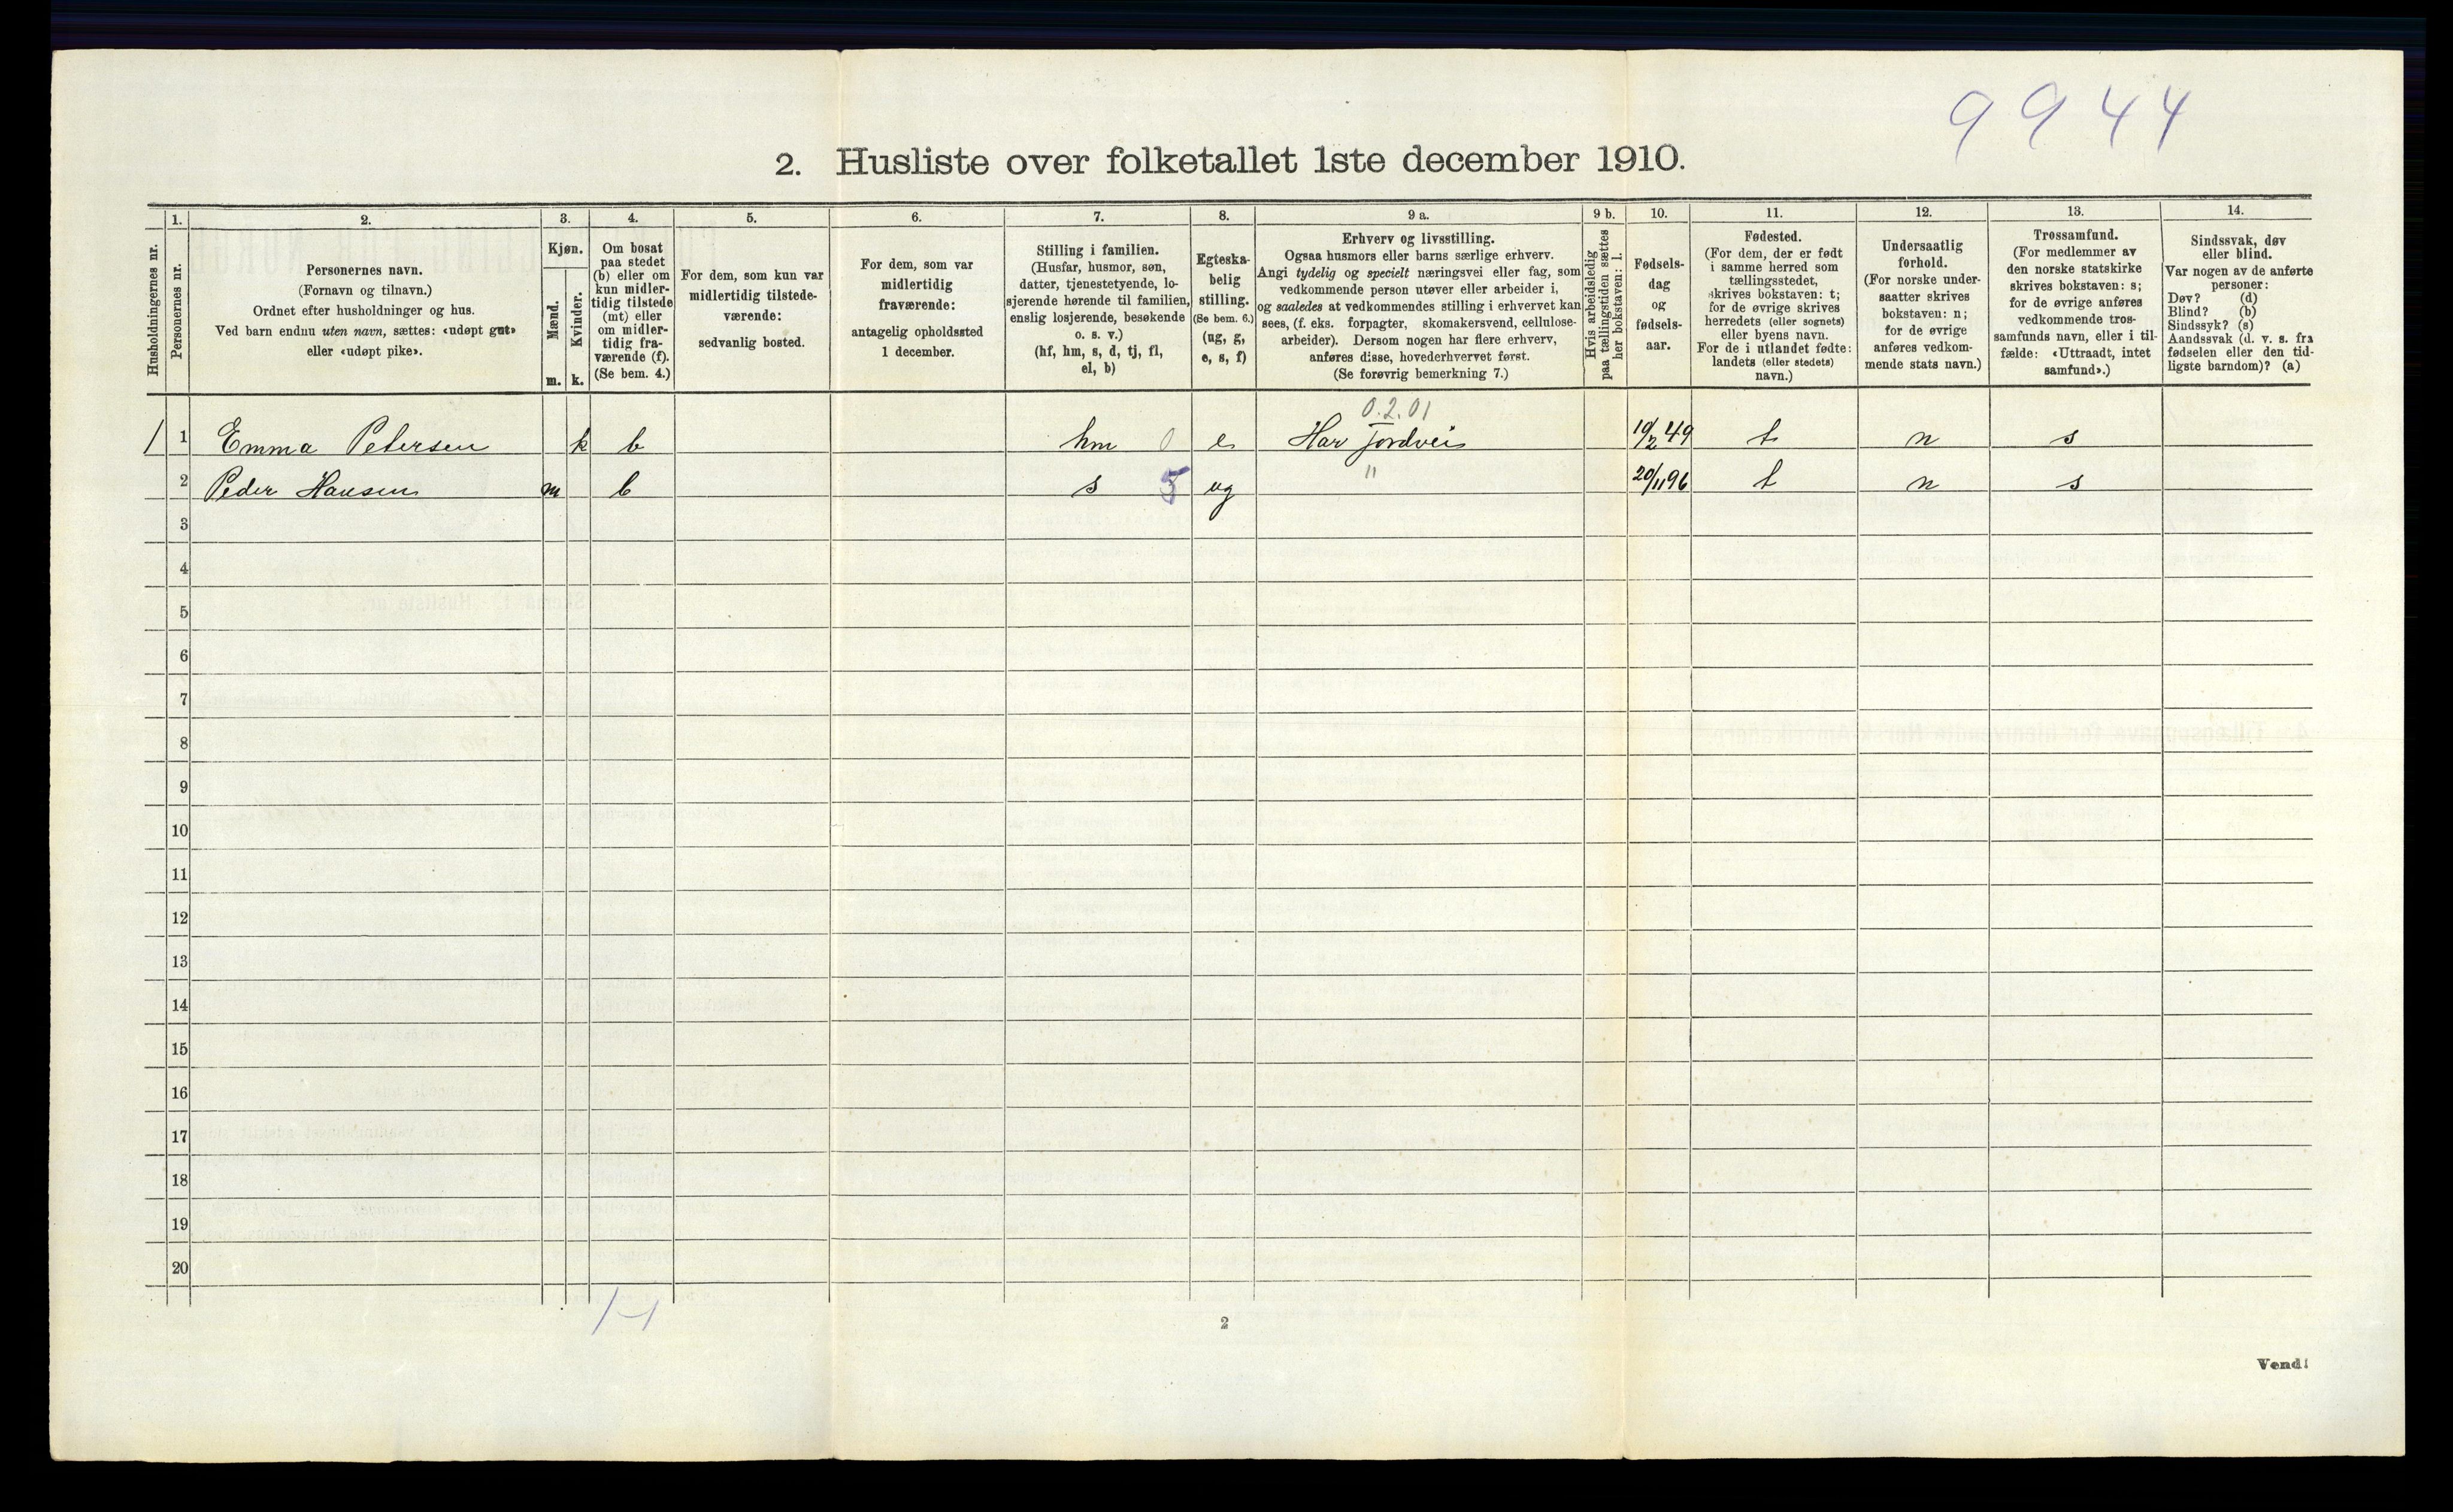 9944
2. Husliste over folketallet 1ste december 1910.
Husholdningernes nr.
1.
Personernes nr.
2.
Personernes navn.
(Fornavn og tilnavn.)
Ordnet efter husholdninger og hus.
Ved barn endnu uten navn, sættes: «udøpt gut»
eller «udøpt pike».
3.
Kjøn.
Mænd.
m.
Kvinder.
k.
4.
Om bosat
paa stedet
(b) eller om
kun midler-
tidig tilstede
(mt) eller
om midler-
tidig fra-
værende (f).
(Se bem. 4.)
5.
For dem, som kun var
midlertidig tilstede-
værende:
sedvanlig bosted.
6.
For dem, som var
midlertidig
fraværende:
antagelig opholdssted
1 december.
7.
Stilling i familien.
(Husfar, husmor, søn,
datter, tjenestetyende, lo-
sjerende hørende til familien,
enslig losjerende, besøkende
o. s. v.)
(hf, hm, s, d, tj, fl,
el, b)
8.
Egteska-
belig
stilling.
(Se bem. 6.)
(ug, g,
e, s, f)
9 a.
Erhverv og livsstilling.
Ogsaa husmors eller barns særlige erhverv.
Angi tydelig og specielt næringsvei eller fag, som
vedkommende person utøver eller arbeider i,
og saaledes at vedkommendes stilling i erhvervet kan
sees, (f. eks. forpagter, skomakersvend, cellulose-
arbeider). Dersom nogen har flere erhverv,
anføres disse, hovederhvervet først.
(Se forøvrig bemerkning 7.)
9 b.
Hvis arbeidsledig
paa tællingstiden sættes
her bokstaven: l.
10.
Fødsels-
dag
og
fødsels-
aar.
11.
Fødested.
(For dem, der er født
i samme herred som
tællingsstedet,
skrives bokstaven: t;
for de øvrige skrives
herredets (eller sognets)
eller byens navn.
For de i utlandet fødte:
landets (eller stedets)
navn.)
12.
Undersaatlig
forhold.
(For norske under-
saatter skrives
bokstaven: n;
for de øvrige
anføres vedkom-
mende stats navn.)
13.
Trossamfund.
(For medlemmer av
den norske statskirke
skrives bokstaven: s;
for de øvrige anføres
vedkommende tros-
samfunds navn, eller i til-
fælde: «Uttraadt, intet
samfund».)
14.
Sindssvak, døv
eller blind.
Var nogen av de anførte
personer:
Døv? (d)
Blind? (b)
Sindssyk? (s)
Aandssvak (d. v. s. fra
fødselen eller den tid-
ligste barndom)? (a)
0.2.01
1 1 Emma Petersen k b hm 0 e Har Jordvei 19/2 49 t n s
2 Peder Hansen m b s 5 ug " 20/11 96 t n s
3
4
5
6
7
8
9
10
11
12
13
14
15
16
17
18
19
20
1-1
2
Vend!